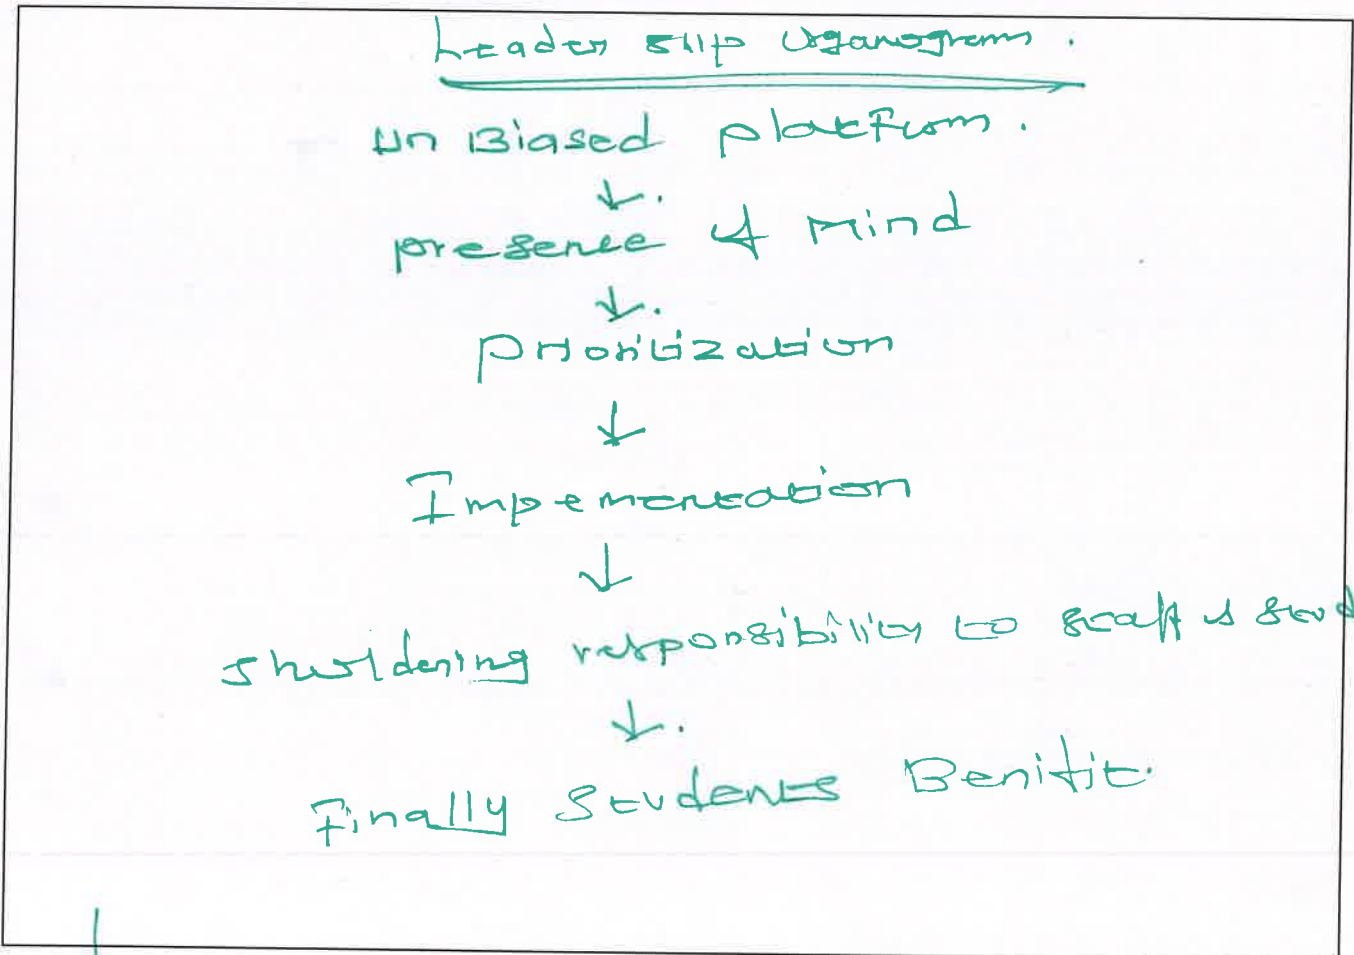 Leader ship organogram.
Un Biased platform.
↓.
presence of Mind
↓.
Prioritization
↓
Impementation
↓
Shouldering responsibility to staff & stud
↓.
Finally Students Benifit.